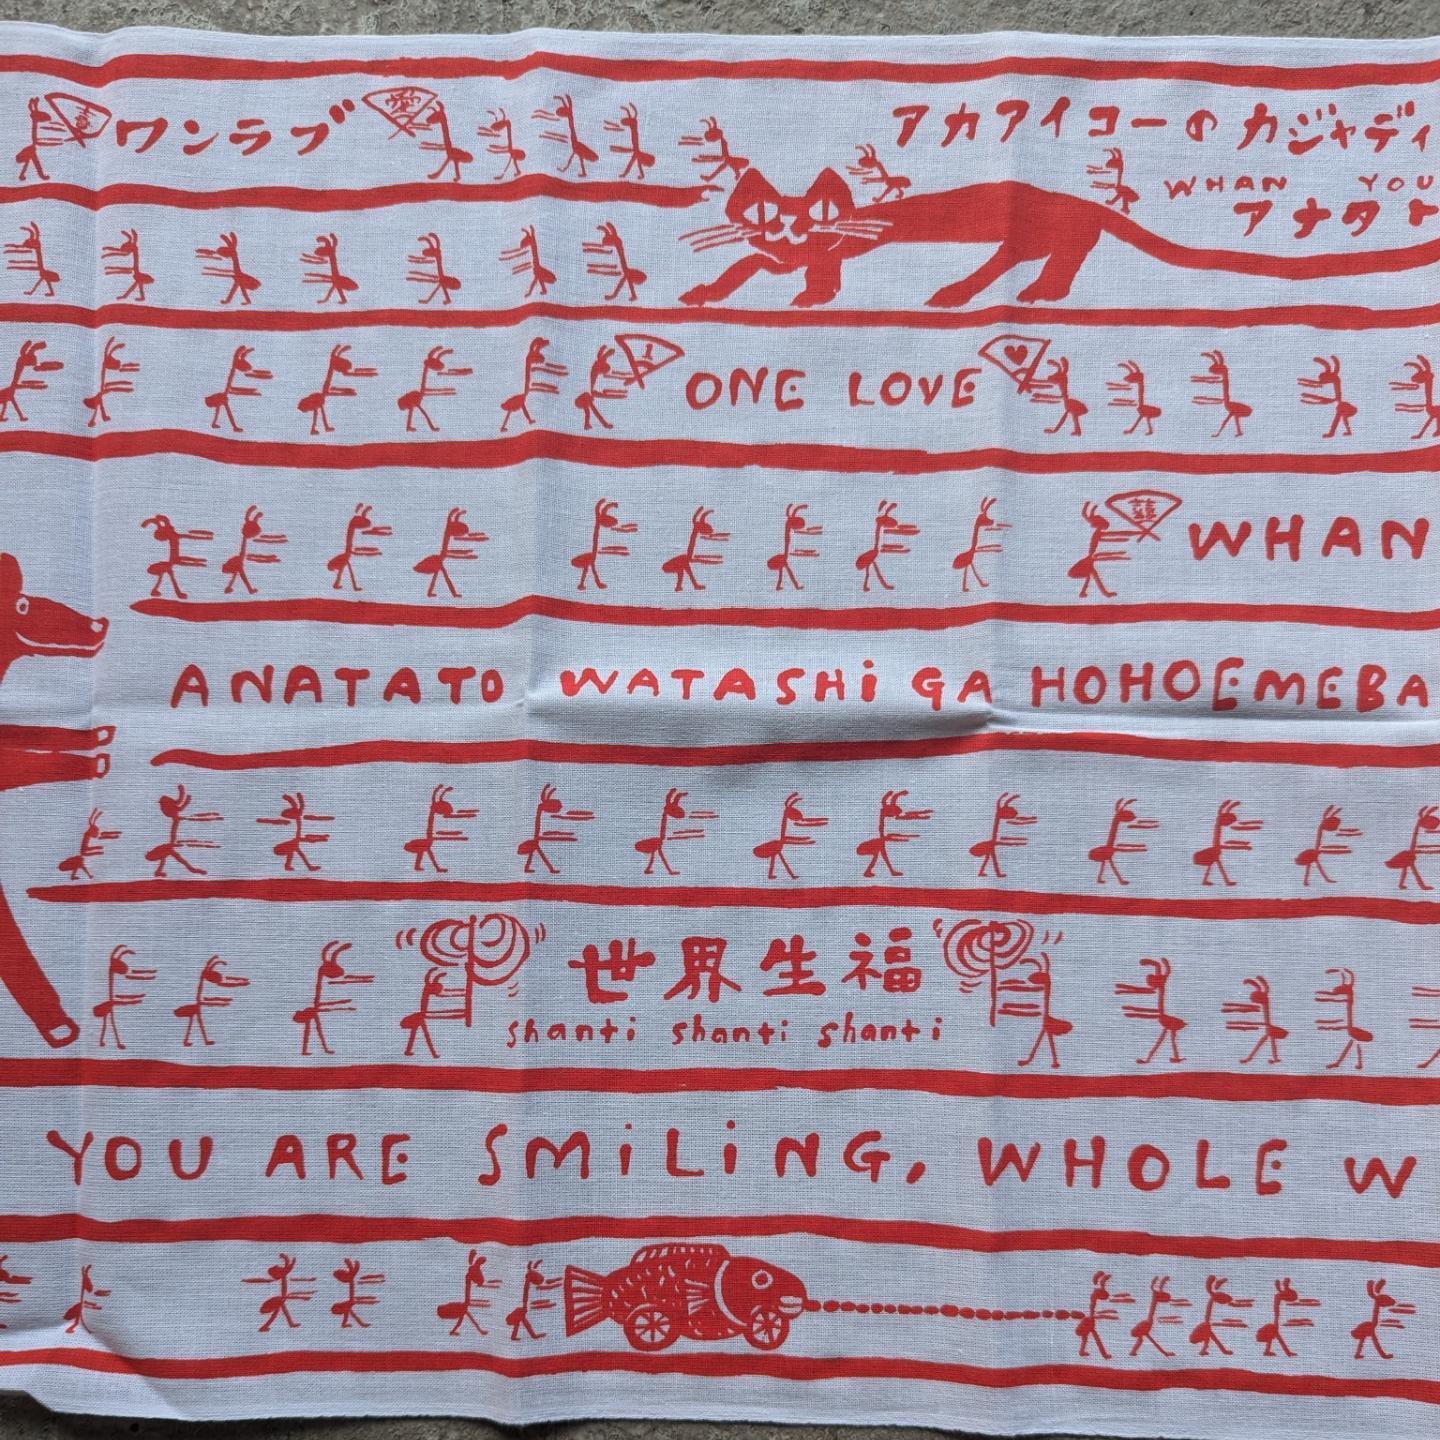 喜 ワンラブ 愛
アカアイコーの カジャディ
WHAN YOU
アナタト
1 ONE LOVE
WHAN
ANATATO WATASHi GA HOHOEMEBA
世界生福
shanti shanti shanti
YOU ARE SMiLiNG, WHOLE W